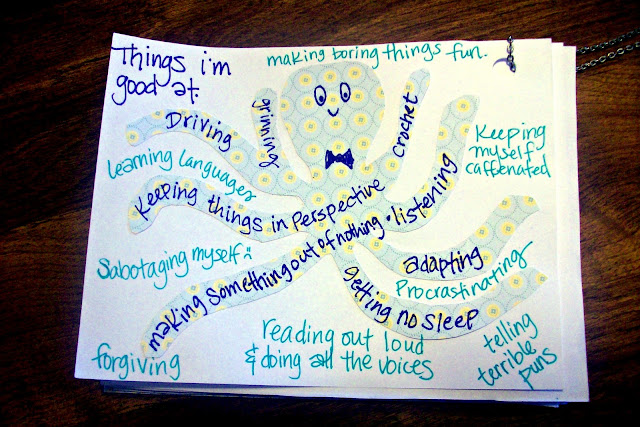 Things i'm
good at.
making boring things fun.
Driving
grinning
crochet
Keeping
myself
caffenated
learning languages
Keeping things in perspective
listening
Sabotaging myself :(
making something out of nothing •
adapting
Procrastinating
getting no sleep
forgiving
reading out loud
& doing all the voices
telling
terrible
puns